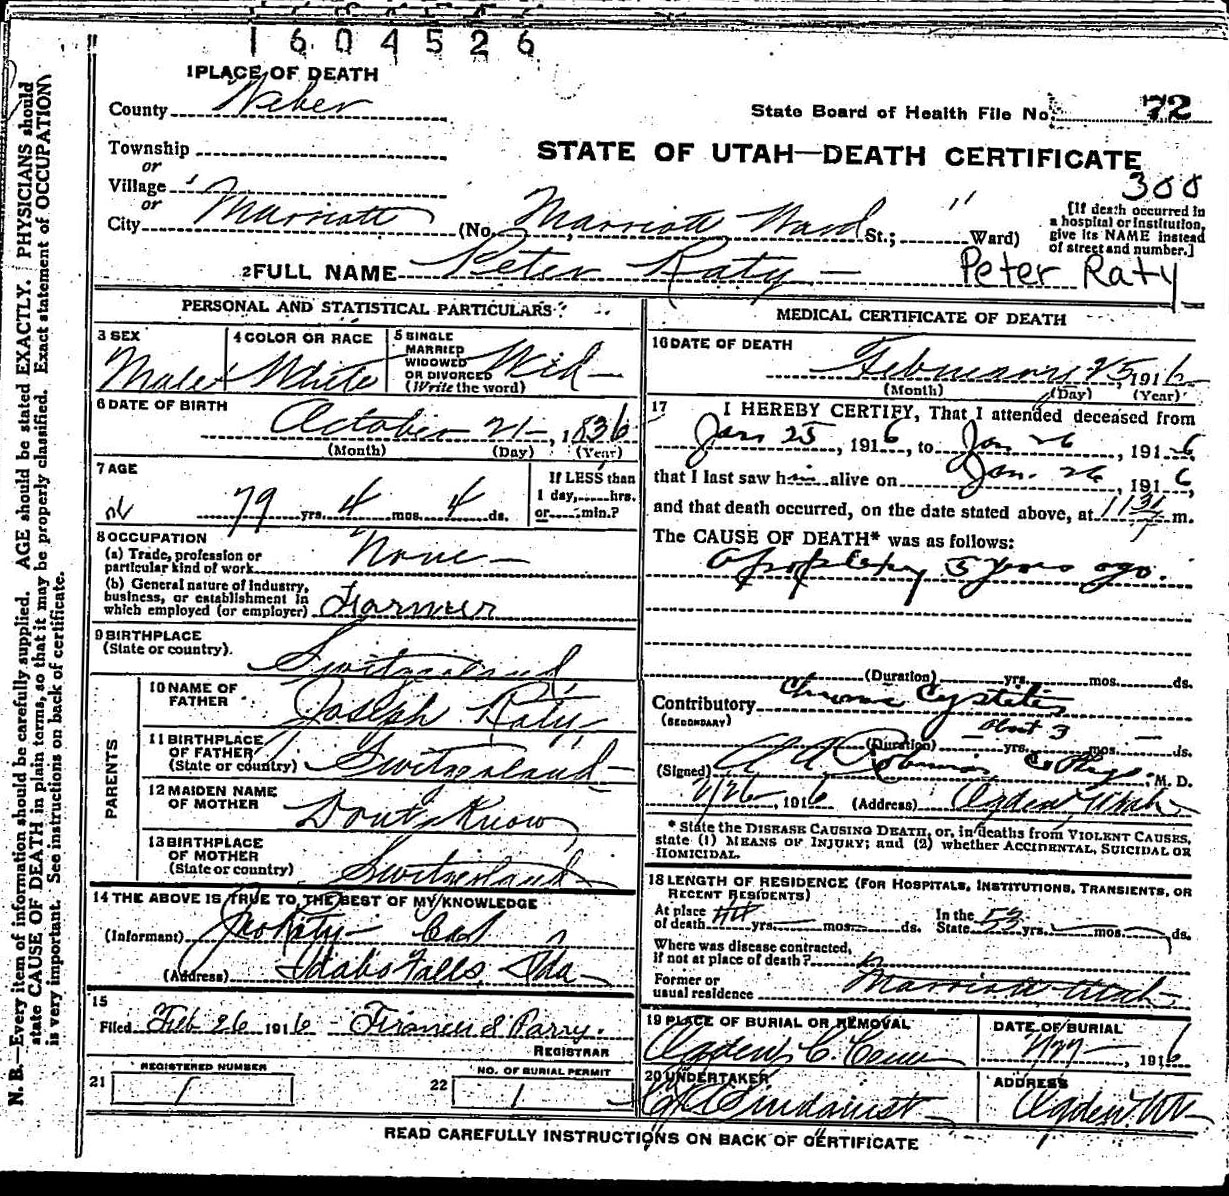 1604526
1 PLACE OF DEATH
County Weber
State Board of Health File No. 72
Township
or
STATE OF UTAH—DEATH CERTIFICATE
Village
300
or
City Marriott (No. Marriott Ward St.; Ward)
[If death occurred in
a hospital or institution,
give its NAME instead
of street and number.]
2 FULL NAME Peter Raty — Peter Raty
PERSONAL AND STATISTICAL PARTICULARS
3 SEX
Male
4 COLOR OR RACE
White
5 SINGLE
MARRIED
WIDOWED
OR DIVORCED
(Write the word)
Wid—
6 DATE OF BIRTH
October 21—, 1836
(Month) (Day) (Year)
7 AGE
79 yrs. 4 mos. 4 ds.
If LESS than
1 day,......hrs.
or......min.?
8 OCCUPATION
(a) Trade, profession or
particular kind of work None—
(b) General nature of industry,
business, or establishment in
which employed (or employer) Farmer
9 BIRTHPLACE
(State or country). Switzerland
PARENTS
10 NAME OF
FATHER Joseph Raty
11 BIRTHPLACE
OF FATHER
(State or country) Switzerland—
12 MAIDEN NAME
OF MOTHER Dont Know
13 BIRTHPLACE
OF MOTHER
(State or country) Switzerland
14 THE ABOVE IS TRUE TO THE BEST OF MY KNOWLEDGE
(Informant) Raty
(Address) Idaho Falls, Ida—
15
Filed Feb 26 1916 — Francis S Parry.
REGISTRAR
21 REGISTERED NUMBER
1
22 NO. OF BURIAL PERMIT
1
MEDICAL CERTIFICATE OF DEATH
16 DATE OF DEATH
February 25, 1916
(Month) (Day) (Year)
17 I HEREBY CERTIFY, That I attended deceased from
Jan 25, 1916, to Jan 26, 1916,
that I last saw him alive on Jan. 26, 1916,
and that death occurred, on the date stated above, at m.
The CAUSE OF DEATH* was as follows:
Apoplexy 5 years ago.
(Duration) yrs. mos. ds.
Contributory Chronic Cystitis
(SECONDARY)
(Duration) About 3 yrs. mos. — ds.
(Signed) A A Robinson Co Phys. M. D.
2/26, 1916 (Address) Ogden Utah
* State the DISEASE CAUSING DEATH, or, in deaths from VIOLENT CAUSES,
state (1) MEANS OF INJURY; and (2) whether ACCIDENTAL, SUICIDAL OR
HOMICIDAL.
18 LENGTH OF RESIDENCE (FOR HOSPITALS, INSTITUTIONS, TRANSIENTS, OR
RECENT RESIDENTS)
At place
of death 44 yrs. mos. ds.
In the
State 53 yrs. mos. ds.
Where was disease contracted,
if not at place of death?
Former or
usual residence Marriott Utah
19 PLACE OF BURIAL OR REMOVAL
Ogden C. Cem
DATE OF BURIAL
2/27—, 1916
20 UNDERTAKER
Lindquist
ADDRESS
Ogden Ut
READ CAREFULLY INSTRUCTIONS ON BACK OF CERTIFICATE
N. B.—Every item of information should be carefully supplied. AGE should be stated EXACTLY. PHYSICIANS should
state CAUSE OF DEATH in plain terms, so that it may be properly classified. Exact statement of OCCUPATION
is very important. See instructions on back of certificate.